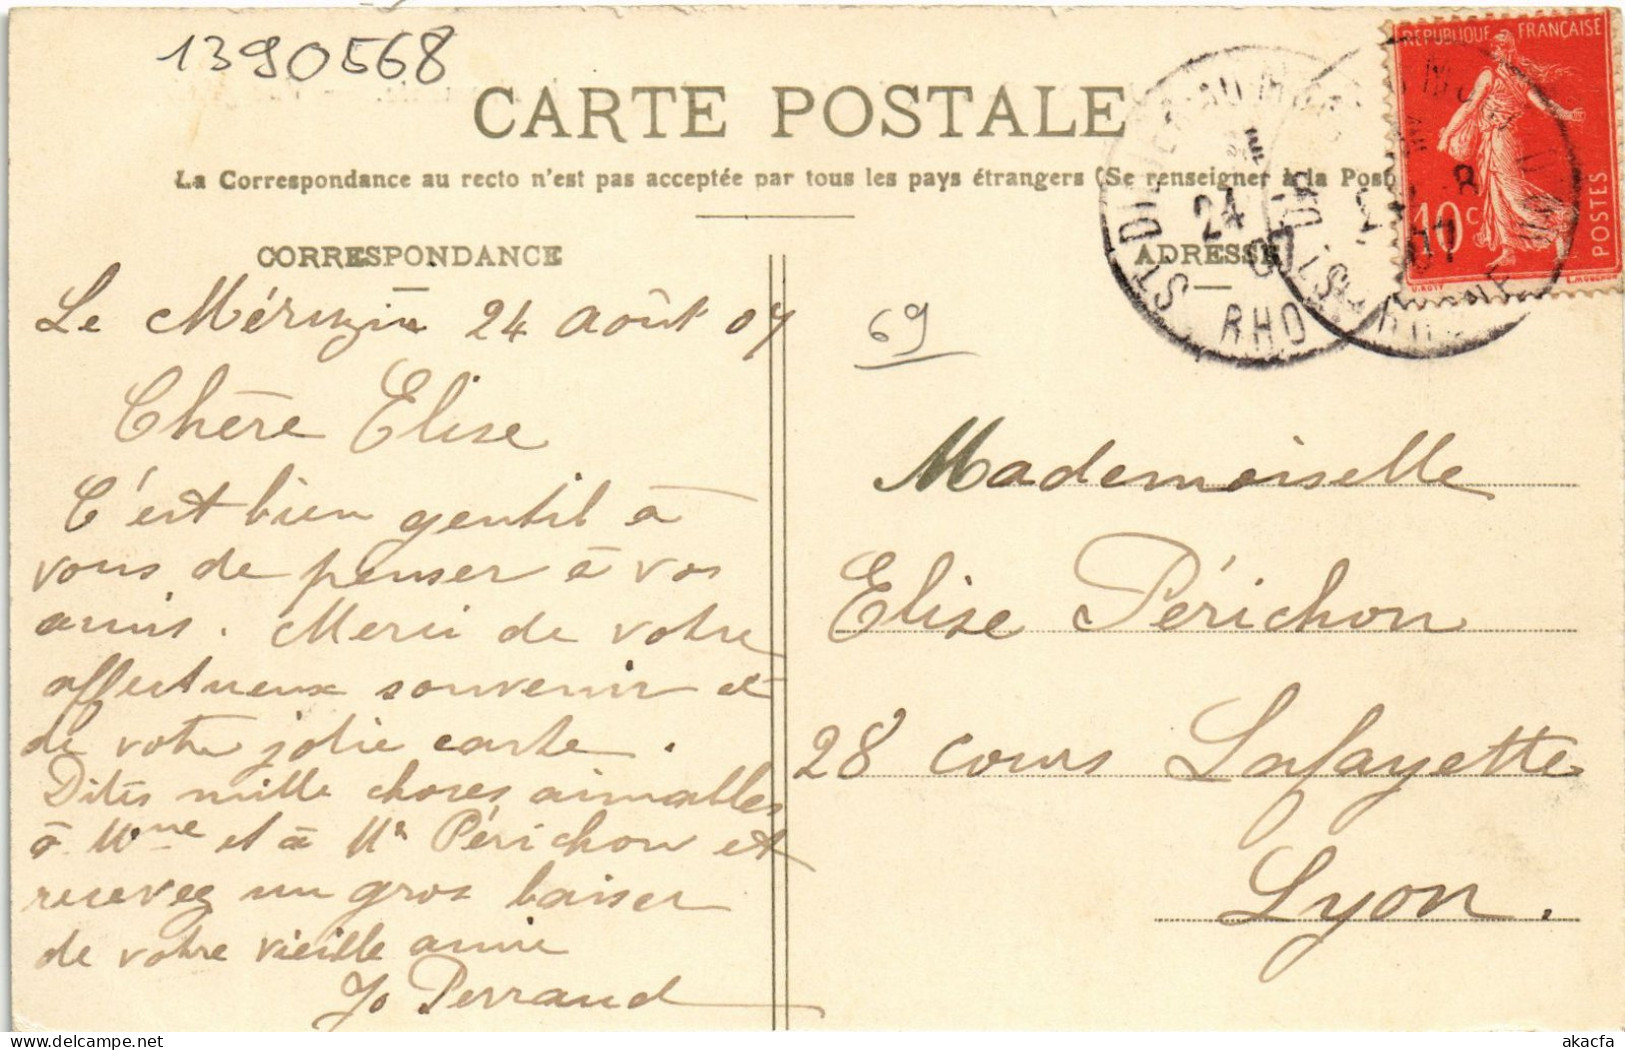 1390568
CARTE POSTALE
La Correspondance au recto n'est pas acceptée par tous les pays étrangers (Se renseigner à la Post
CORRESPONDANCE
Le 24 Août 07
Chère Elise
C'est bien gentil à
vous de penser à vos
amis. Merci de votre
affectueux souvenir et
de votre jolie carte.
Dites mille choses aimables
à Mme et à Mr Périchon et
recevez un gros baiser
de votre vieille amie
Jo Perraud
ADRESSE
69
Mademoiselle
Elise Périchon
28 cours Lafayette
Lyon.
REPUBLIQUE FRANÇAISE
10c
POSTES
ST DIDIER AU MONT D'OR
24
RHO
akacfa